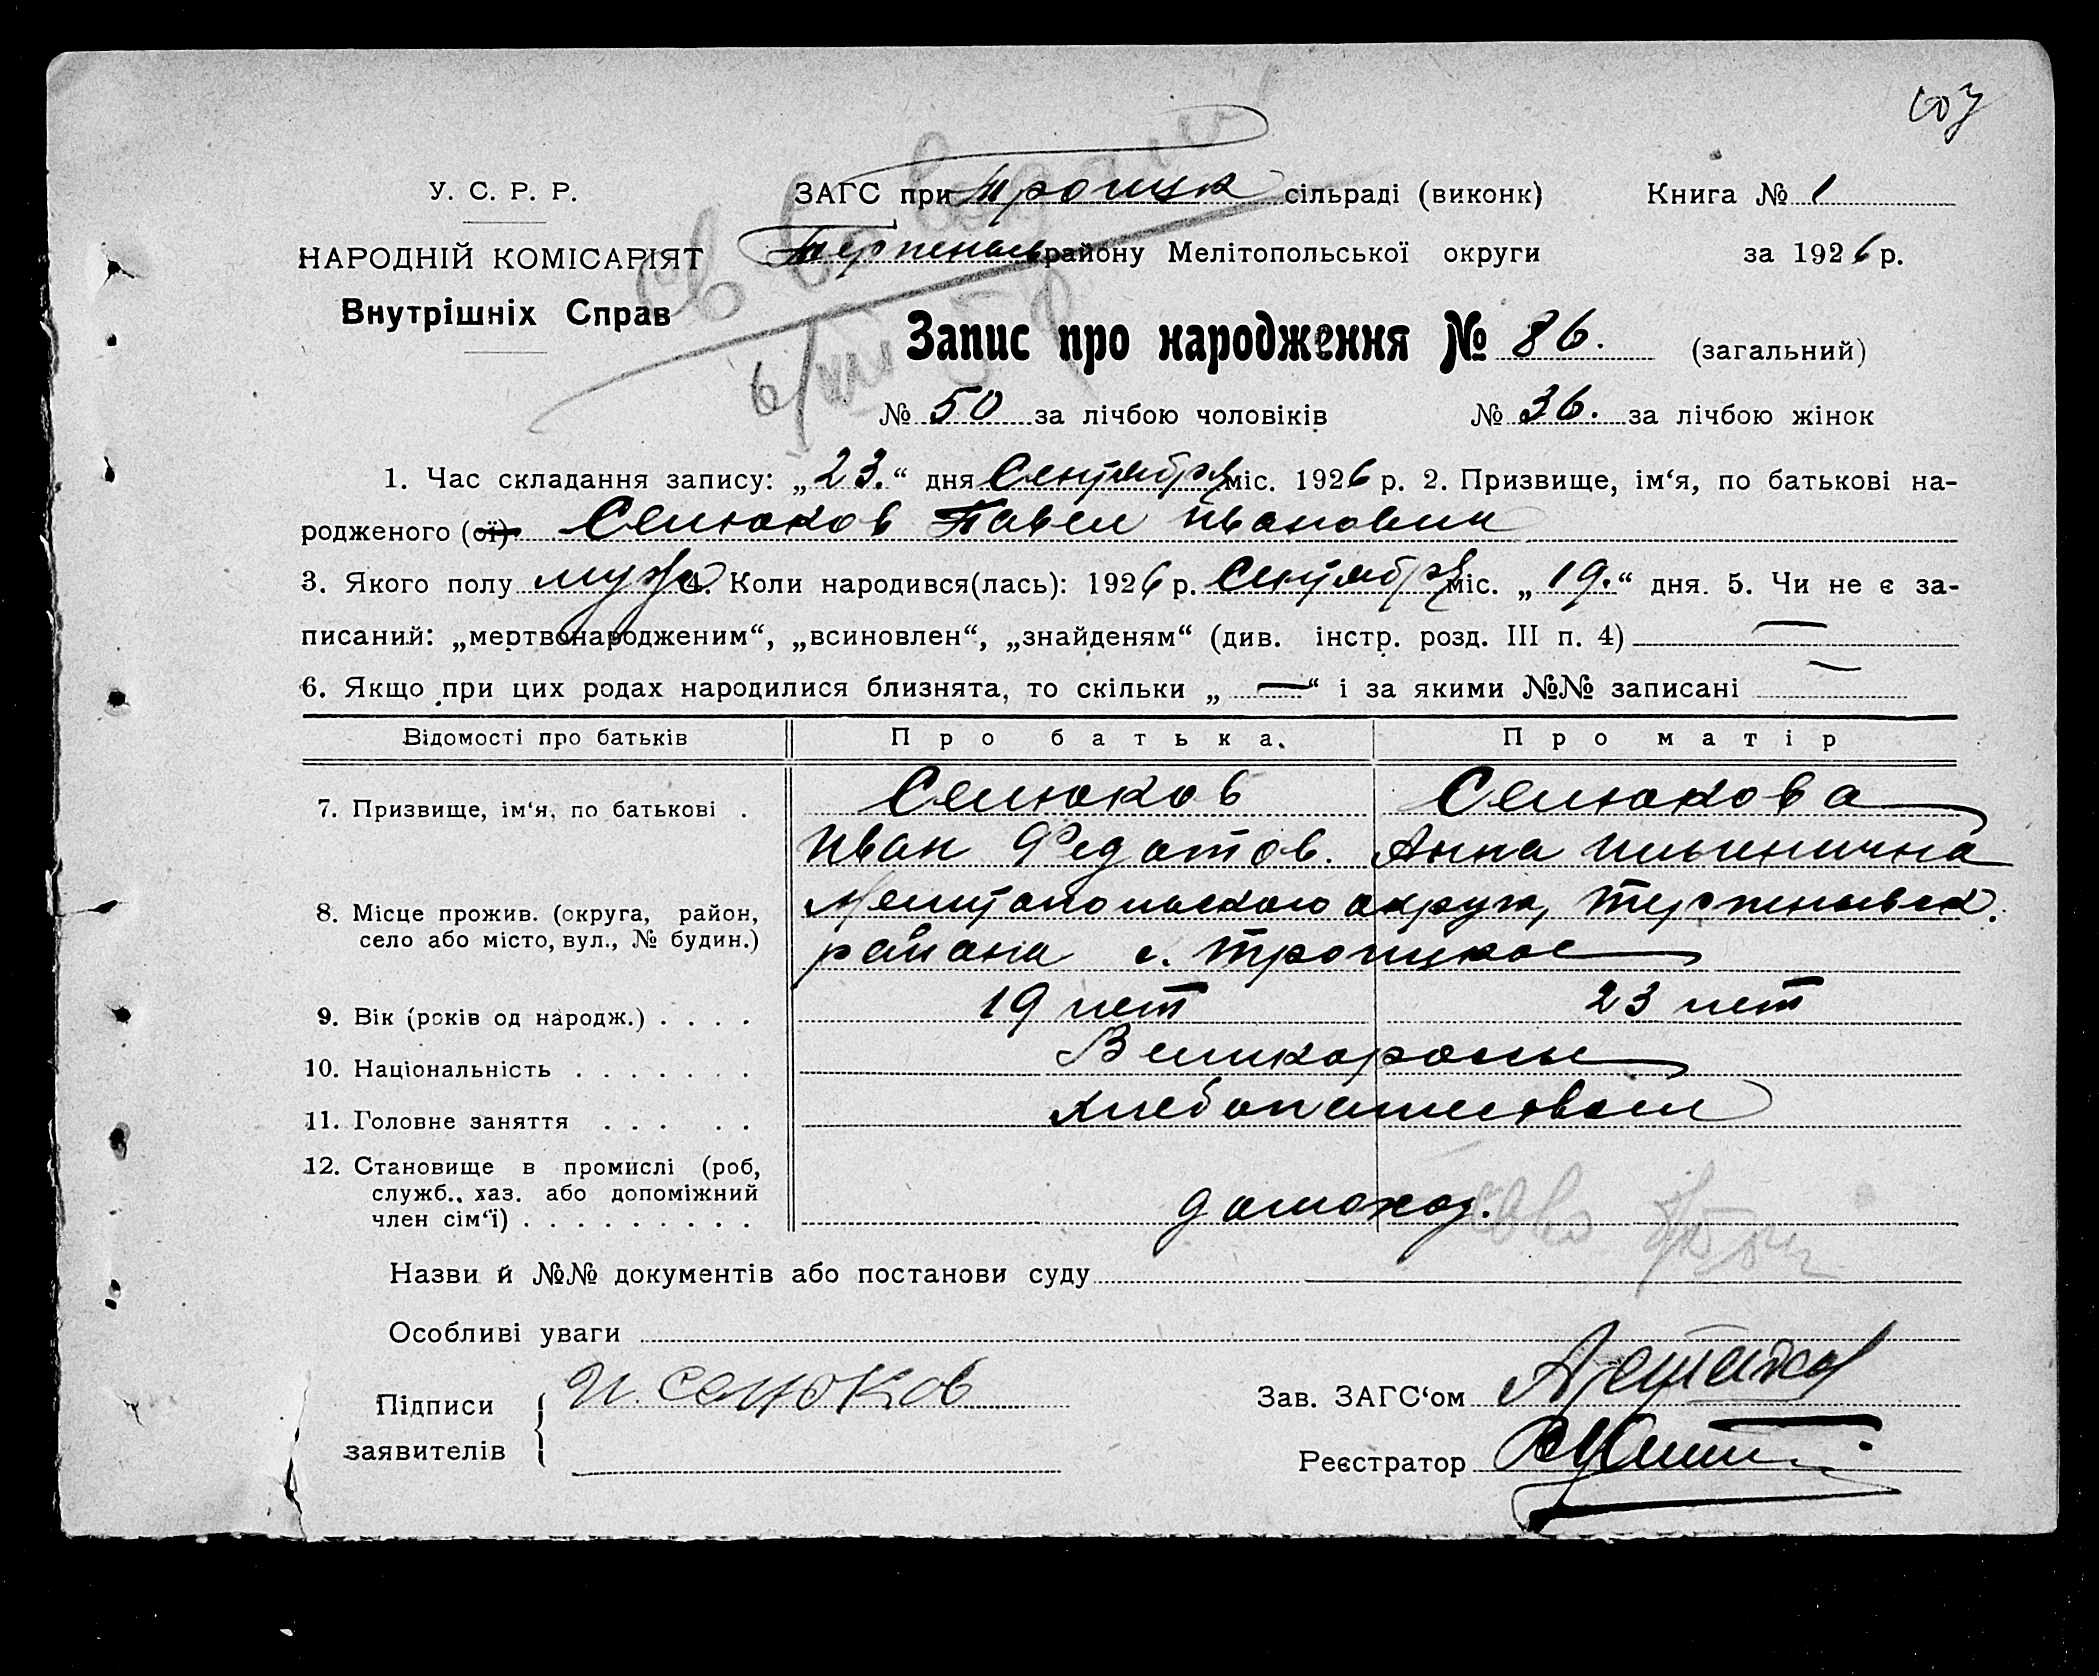 103
У. С. Р. Р.
ЗАГС при Троицк сільраді (виконк)
Книга № 1
НАРОДНІЙ КОМІСАРІЯТ
Терпеньев району Мелітопольської округи
за 1926 р.
Внутрішніх Справ
Запис про народження № 86. (загальний)
6/VIII 5
№ 50 за лічбою чоловіків
№ 36. за лічбою жінок
1. Час складання запису: „23.“ дня Сентября міс. 1926 р. 2. Призвище, ім‘я, по батькові на-
родженого (ої) Селюков Павел Иванович
3. Якого полу муж 4. Коли народився(лась): 1926 р. Сентября міс. „19.“ дня. 5. Чи не є за-
писаний: „мертвонародженим“, „всиновлен“, „знайденям“ (див. інстр. розд. III п. 4) —
6. Якщо при цих родах народилися близнята, то скільки „ — “ і за якими №№ записані —
Відомості про батьків
Про батька.
Про матір
7. Призвище, ім‘я, по батькові .
Селюков
Селюкова
Иван Федотов.
Анна Ильинична
8. Місце прожив. (округа, район,
село або місто, вул., № будин.)
Мелитопольского округа, Терпеньевск.
района с. Троицкое
9. Вік (років од народж.) . . . .
19 лет
23 лет
10. Національність . . . . . . .
Великороссы
11. Головне заняття . . . . .
хлебопашеством
12. Становище в промислі (роб,
служб., хаз. або допоміжний
член сім‘ї) . . . . . . . . .
домохоз.
Назви й №№ документів або постанови суду
Особливі уваги
Підписи
заявителів
И. Селюков
Зав. ЗАГС‘ом
Реєстратор